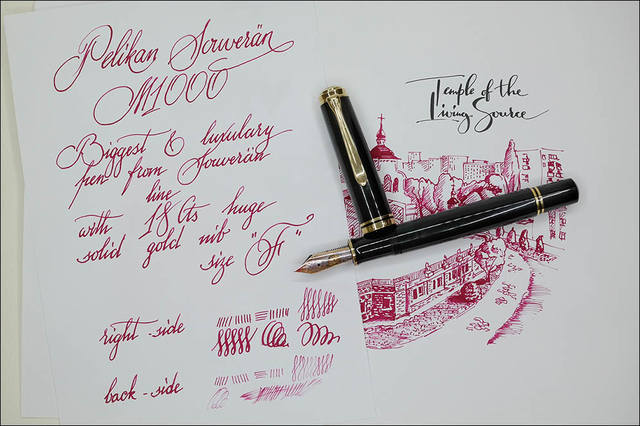 Pelikan Souverän
M1000
Biggest & luxulary
pen from Souverän
line
with 18 Cts huge
solid gold nib
size "F"
right-side
back-side
Temple of the
Living Source